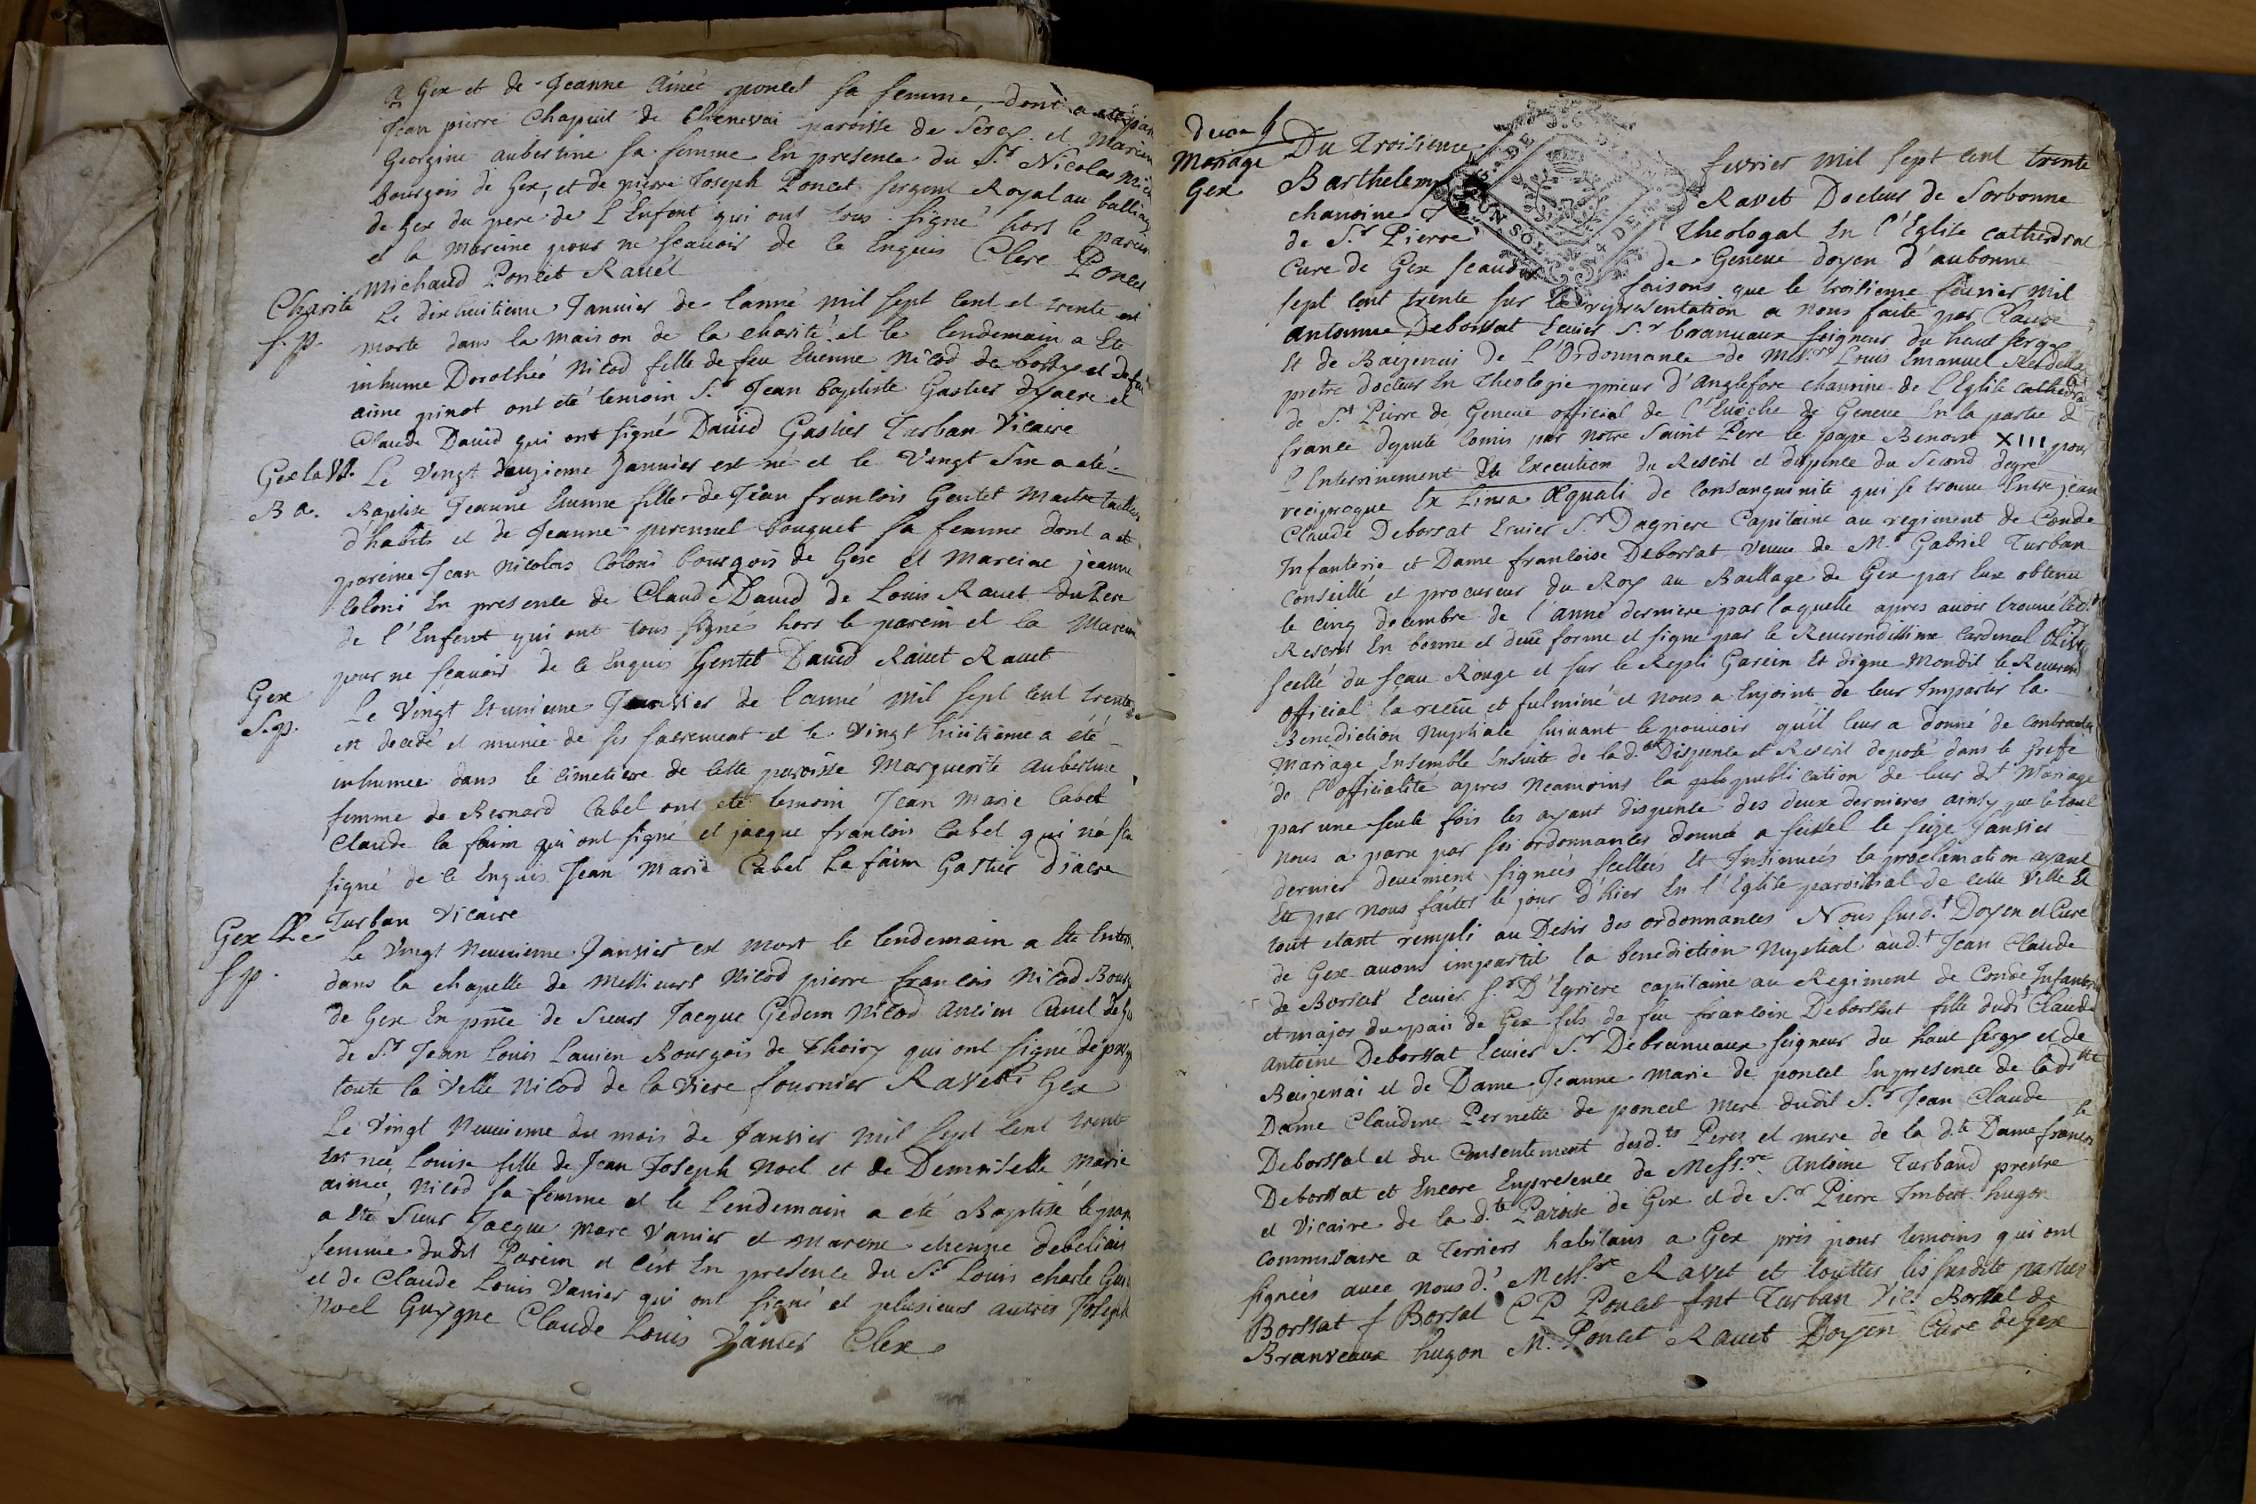 a Gex et de Jeanne Aimée poncet sa femme, dont a eté parein
Jean pierre Chapuit de Chenevai paroisse de Sergy et Mareine
Georgine aubertine sa femme En presence du S.r Nicolas Mich
Bourgois de Gex, et de pierre Joseph Poncet sergent Royal au balliage
de Gex du pere de L'Enfent qui ont tous signé hors le parein
et la Mareine pour ne scavoir de ce Enquis Clerc Poncet
Michaud Poncet Ravet
Charité
S. p.
Le dixhuitieme Januier de lanné mil sept cent et trente est
morte dans la maison de la charité et le lendemain a Ete
inhumé Dorothée Nicod fille de feu Etienne Nicod de
aime pinot ont eté temoin S.r Jean baptiste Gastier dyacre et
Claude David qui ont signé David Gastier Turban Vicaire
Gex la Ville
B a.
Le Vingt deuzieme Januier est né et le Vingt Six a eté
Baptisé Jeanne Etienne fille de Jean francois Gentet Maitre tailleur
d'habits et de Jeanne pernnel bouquet sa femme dont a et
pareine Jean Nicolas Coloni bourgois de Gex et Mareine jeanne
Coloni En presence de Claude David de Louis Ravet du Pere
de l'Enfent qui ont tous signé hors le parein et la Mareine
pour ne scavoir de ce Enquis Gentet David Ravet Ravet
Gex
S. p.
Le Vingt Et unieme Janvier de lanné mil sept cent trente
est decedé et munie de ses sacrement et le vingt huitieme a été
inhumee dans le cimetiere de cette paroisse Marguerite Aubertine
femme de Bernard Cabet ont eté temoin Jean Marie Cabet
Claude la faim qui ont signé et jacque francois Cabet qui na sceu
signé de ce Enquis Jean Marie Cabet La faim Gastier Diacre
Turban Vicaire
Gex
S p.
Le Vingt Neuvieme Janvier est mort le lendemain a Ete Enterr
dans la chapelle de Messieurs Nicod pierre francois Nicod Bourg
de Gex En pnce de Sieurs Jacque Gedeon Nicod Ancien
de S.r Jean Louis Lavien Bourgois de Thoiry qui ont signé de
toute la Ville Nicod de la Viere fournier Ravet Gex
Le Vingt Neuvieme du mois de Janvier mil sept cent trente
Est née Louise fille de Jean Joseph Noel et de Demoiselle Marie
aimée Nicod sa femme et le Lendemain a été Baptisé le parein
a Eté Sieur Jacque Marc Vanier et Mareine etienne debelian
femme dudit Parein et c'est En presence du S.r Louis charle
et de Claude Louis Vanier qui ont signé et plusieurs autres Joseph
Noel Guygne Claude Louis Vanier Clex
Mariage
Gex
Du Troisieme fevrier mil sept cent trente
Barthelemy Ravet Docteur de Sorbonne
chanoine Theologal En l'Eglise cathedral
de S.t Pierre de Geneve doyen d'aubonne
Cure de Gex faisons que le troisieme fevrier mil
sept cent trente sur la representation a nous faite par Claude
Antoinne Deborssat Ecuier S.r branvaux seigneur du haut sergy
Et de Baizenai de L'Ordonnance de Mess.re Louis Emanuel
pretre docteur En Theologie prieur d'Anglefore chanoine de l'Eglise Cathedra
de S.t Pierre de Geneve official de l'Eveche de Geneve En la partie de
france deputé comis par notre Saint Pere le pape Benoist XIII pour
L'Enterinement Et Execution du Rescrit et dispence du Second degré
reciproque Ex Linea Æquali de Consanguinité qui se trouve Entre jean
Claude Deborsat Ecuier S.r Dagriere Capitaine au regiment de Conde
Infanterie et Dame francoise Deborsat veuve de M.r Gabriel Turban
Conseillé et procureur du Roy au Baillage de Gex par Eux obtenu
le cinq decembre de l'anné derniere par laquelle apres avoir trouvé led.t
Rescrit En bonne et deüe forme et signé par le Reverendissime Cardinal
scellé du sceau Rouge et sur le Repli Garcin Et digne Mondit le Reverend
official la receu et fulminé et nous a Enjoint de leur Impartir la
Benediction Nuptiale suivant le pouvoir qu'il leur a donné de contracter
mariage Ensemble Ensuite de lad. Dispence et Rescrit deposé dans le grefe
de l'officialité apres Neamoins la publication de leur dt Mariage
par une seule fois les ayant dispensé des deux dernieres ainsy que le tout
nous a paru par ses ordonnances donnée a seissel le seize Janvier
dernier deuement signées scellées Et Insinuées la proclamation ayant
Eté par nous faites le jour d'hier En l'Eglise paroissial de cette Ville Et
tout etant rempli au Desir des ordonnances Nous susd.t Doyen et Cure
de Gex avons impartit la benediction Nuptial aud.t Jean Claude
de Borssat Ecuier S.r D'Egriere capitaine au Regiment de Conde Infanterie
et major du pais de Gex fils de feu francois Deborssat fille dudt Claude
Antoine Deborssat Ecuier S.r Debranvaux seigneur du haut sergy et de
Beizenai et de Dame Jeanne Marie de poncet En presence de lad.tte
Dame Claudine Pernette de poncet mere dudit S.r Jean Claude
Deborssat et du Consentement desd.ts Peres et mere de la d.te Dame francoi
Deborssat et Encore Enpresence de Mess.re Antoine Turband prestre
et Vicaire de la d.te Paroise de Gex et de S.r Pierre Imbert hugon
Commissaire a Terriers habitans a Gex pris pour temoins qui ont
signéés avec nous d.t Mess.re Ravet et touttes les susdits parties
Borssat f Borsat C P Poncet Ant Turban Vic. Borssat de
Branveaux hugon M. Poncet Ravet Doyen Cure de Gex